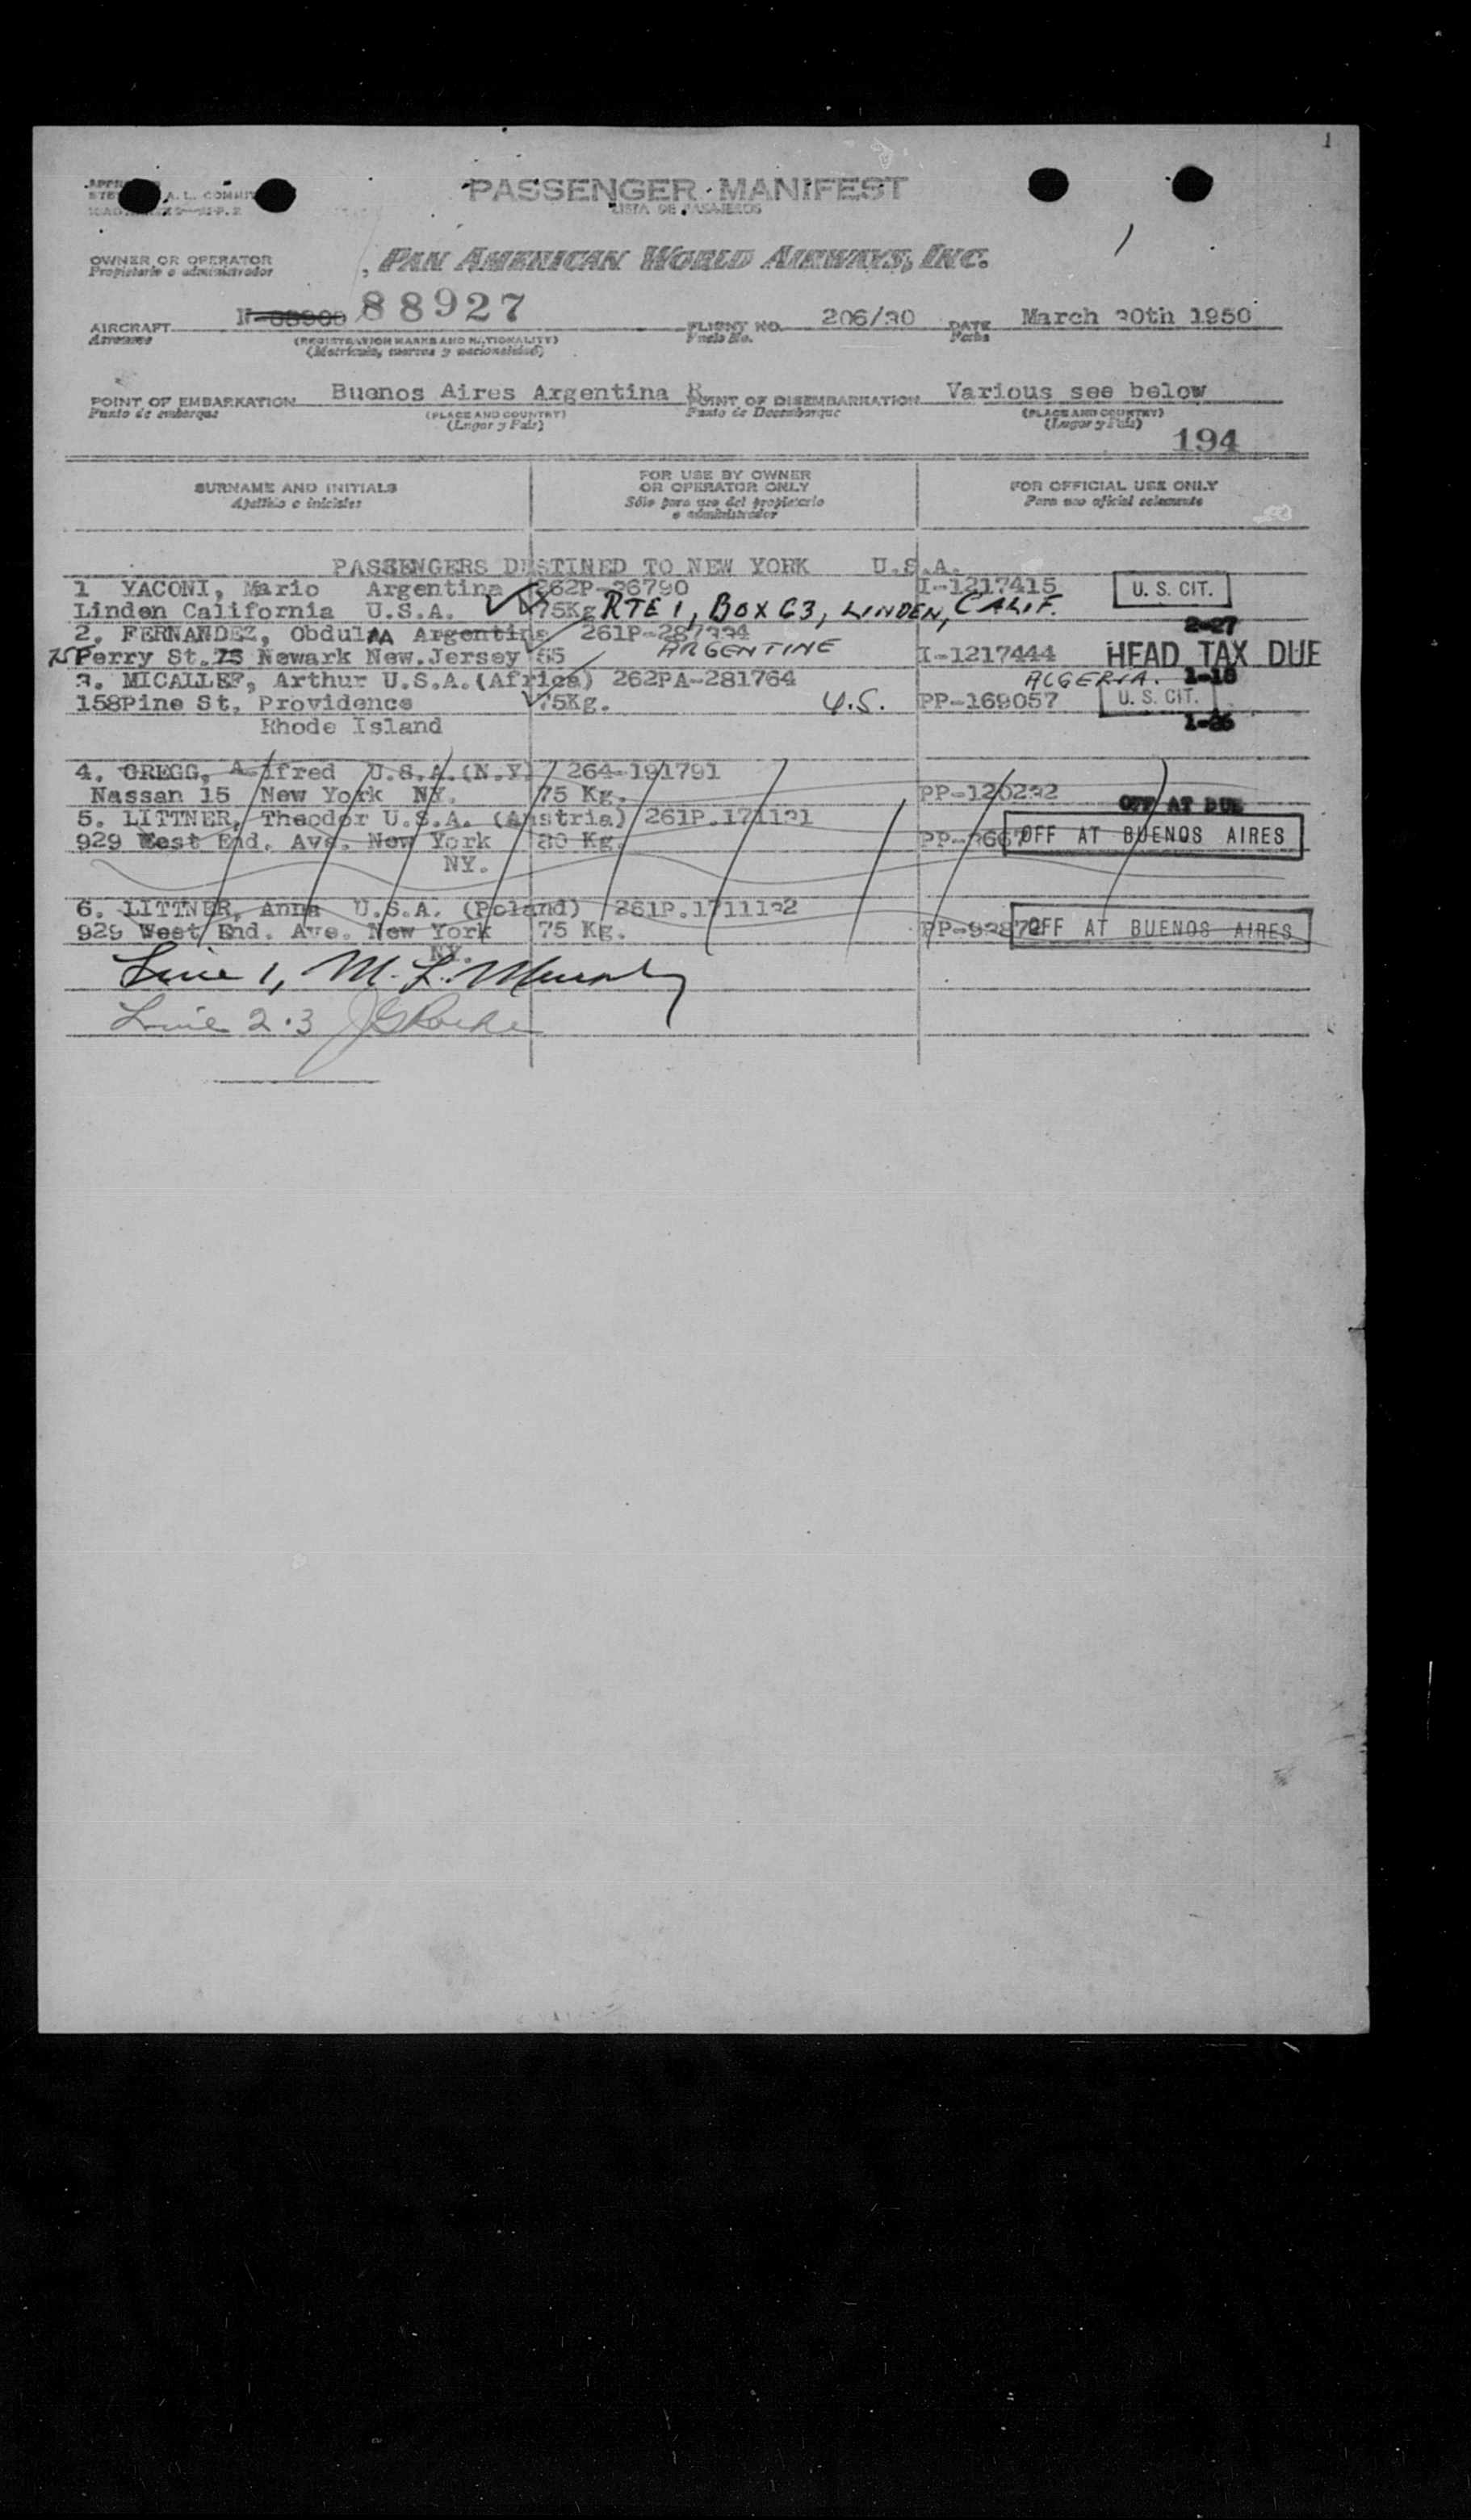 1
PASSENGER MANIFEST
LISTA DE PASAJEROS
OWNER OR OPERATOR
Propietario o administrador
PAN AMERICAN WORLD AIRWAYS, INC.
AIRCRAFT N-88900 88927 FLIGHT NO. 206/30 DATE March 30th 1950
Aeronave (REGISTRATION MARKS AND NATIONALITY) Vuelo No. Fecha
(Matrícula, marcas y nacionalidad)
POINT OF EMBARKATION Buenos Aires Argentina R POINT OF DISEMBARKATION Various see below
Punto de embarque (PLACE AND COUNTRY) Punto de Desembarque (PLACE AND COUNTRY)
(Lugar y País) (Lugar y País)
194
SURNAME AND INITIALS
Apellido e iniciales
FOR USE BY OWNER
OR OPERATOR ONLY
Sólo para uso del propietario
o administrador
FOR OFFICIAL USE ONLY
Para uso oficial solamente
PASSENGERS DESTINED TO NEW YORK U.S.A.
1 YACONI, Mario Argentina 262P-36790 I-1217415 U. S. CIT.
Linden California U.S.A. 75Kg RTE 1, BOX 63, LINDEN, CALIF.
2-27
2. FERNANDEZ, Obdulia Argentina 261P-287334
75 Ferry St. 75 Newark New.Jersey 55 ARGENTINE I-1217444 HEAD TAX DUE
3. MICALLEF, Arthur U.S.A.(Africa) 262PA-281764 ALGERIA. 1-18
158Pine St, Providence 75Kg. U.S. PP-169057 U. S. CIT.
Rhode Island 1-26
4. GREGG, Alfred U.S.A.(N.Y) 264-191791
Nassan 15 New York NY. 75 Kg. PP-120232
OFF AT BUE
5. LITTNER, Theodor U.S.A. (Austria) 261P.171131
929 West End. Ave. New York 80 Kg. OFF AT BUENOS AIRES
NY.
6. LITTNER, Anna U.S.A. (Poland) 261P.1711132
929 West End. Ave. New York 75 Kg. OFF AT BUENOS AIRES
NY.
Line 1, M. L. Murphy
Line 2.3